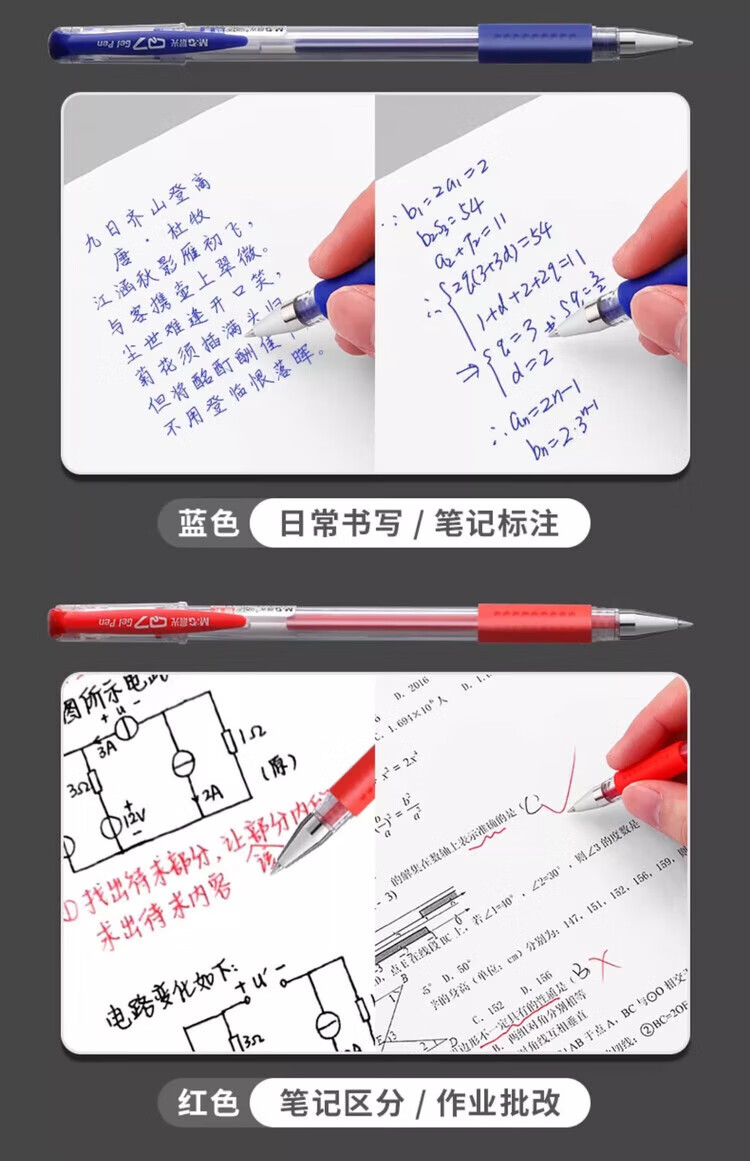 M&G 晨光 Q7 Gel Pen
九日齐山登高
唐·杜牧
江涵秋影雁初飞，
与客携壶上翠微。
尘世难逢开口笑，
菊花须插满头归
但将酩酊酬佳
不用登临恨落晖。
∵ b₁=2a₁=2
b₂S₃=54
a₂+T₂=11
∴ {2q(3+3d)=54
1+d+2+2q=11
⇒ {q=3
d=2
∴ aₙ=2n-1
bₙ=2·3ⁿ⁻¹
蓝色 日常书写 / 笔记标注
M&G 晨光 Q7 Gel Pen
图所示电
+ u -
3A
1Ω
3Ω
2A
12V
+
-
(原)
找出待求部分，让部分内
求出待求内容
电路变化如下:
+ u' -
3Ω
2A
D. 2016
C. 1.691×10⁶人
x²=2x⁴
的解集在数轴上表示准确的是 (C)
3)
若∠1=40°，∠2=30°，则∠3的度数是
点E在线段BC上，
分别为：147，151，152，156，159，则
5° D. 50°
的身高 (单位：cm)
C. 152 D. 156
边形不一定具有的性质是 B
B. 两组对角分别相等
对角线互相垂直
AB于点A，BC与⊙O相交
②BC=2OF
红色 笔记区分 / 作业批改